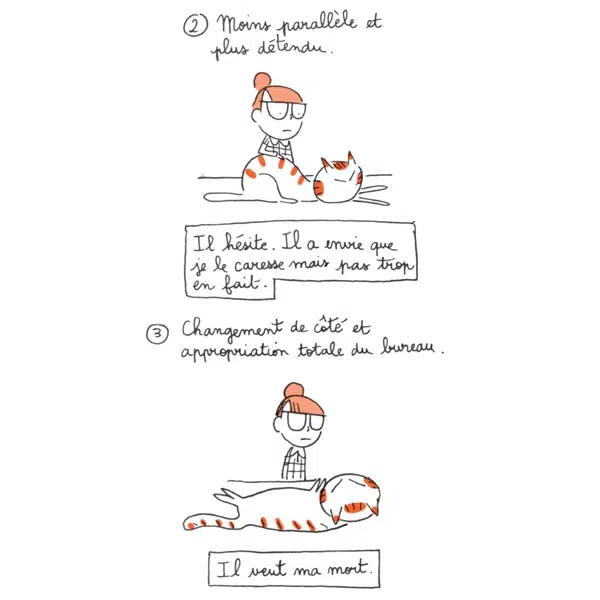 ② Moins parallèle et
plus détendu.
Il hésite. Il a envie que
je le caresse mais pas trop
en fait.
③ Changement de côté et
appropriation totale du bureau.
Il veut ma mort.